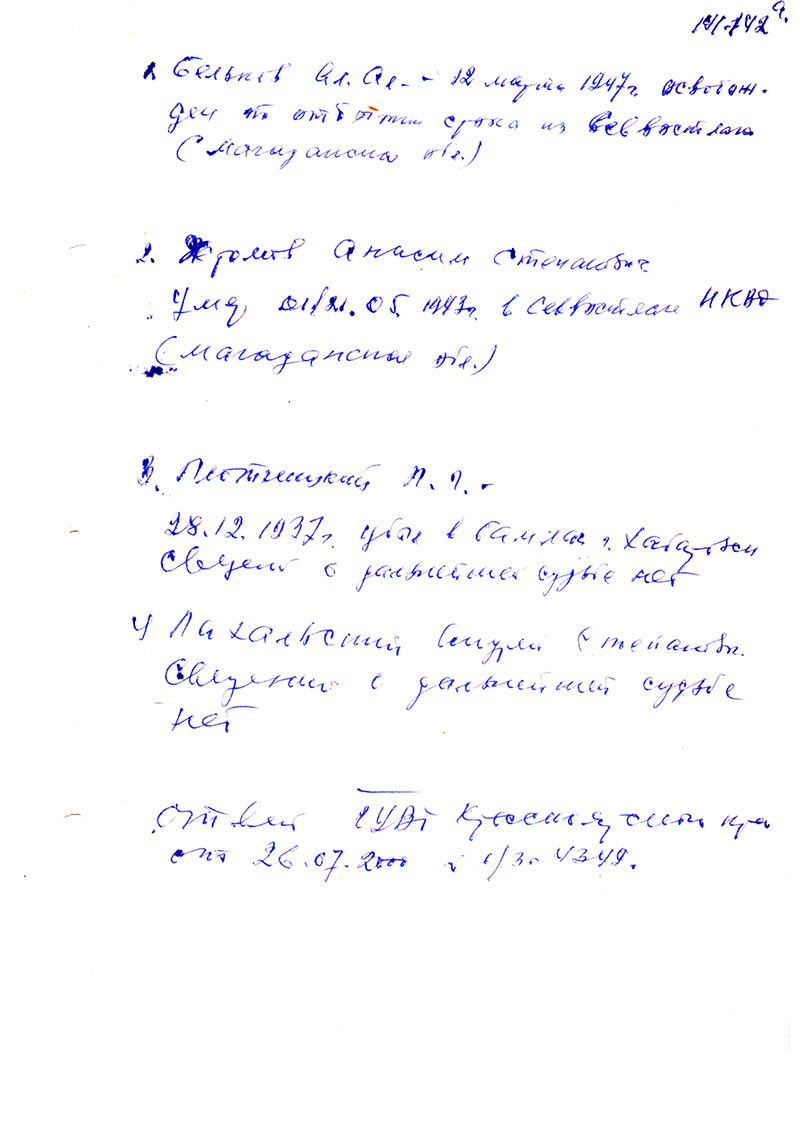 1. Бельков Ал. Ал. - 12 марта 1947г. освобож-
ден по отбытии срока из Севвостлага
(Магаданская обл.)
2. Анисим Степанович
Умер 21.05.1943г. в Севвостлаге НКВД
(Магаданская обл.)
3. Плотницкий П. П. -
28.12.1937г. убыл в Бамлаг г. Хабаровск
Сведений о дальнейшей судьбе нет
4) Степанович.
Сведений о дальнейшей судьбе
нет
Ответ ГУВД Красноярского края
от 26.07.2000 4349.